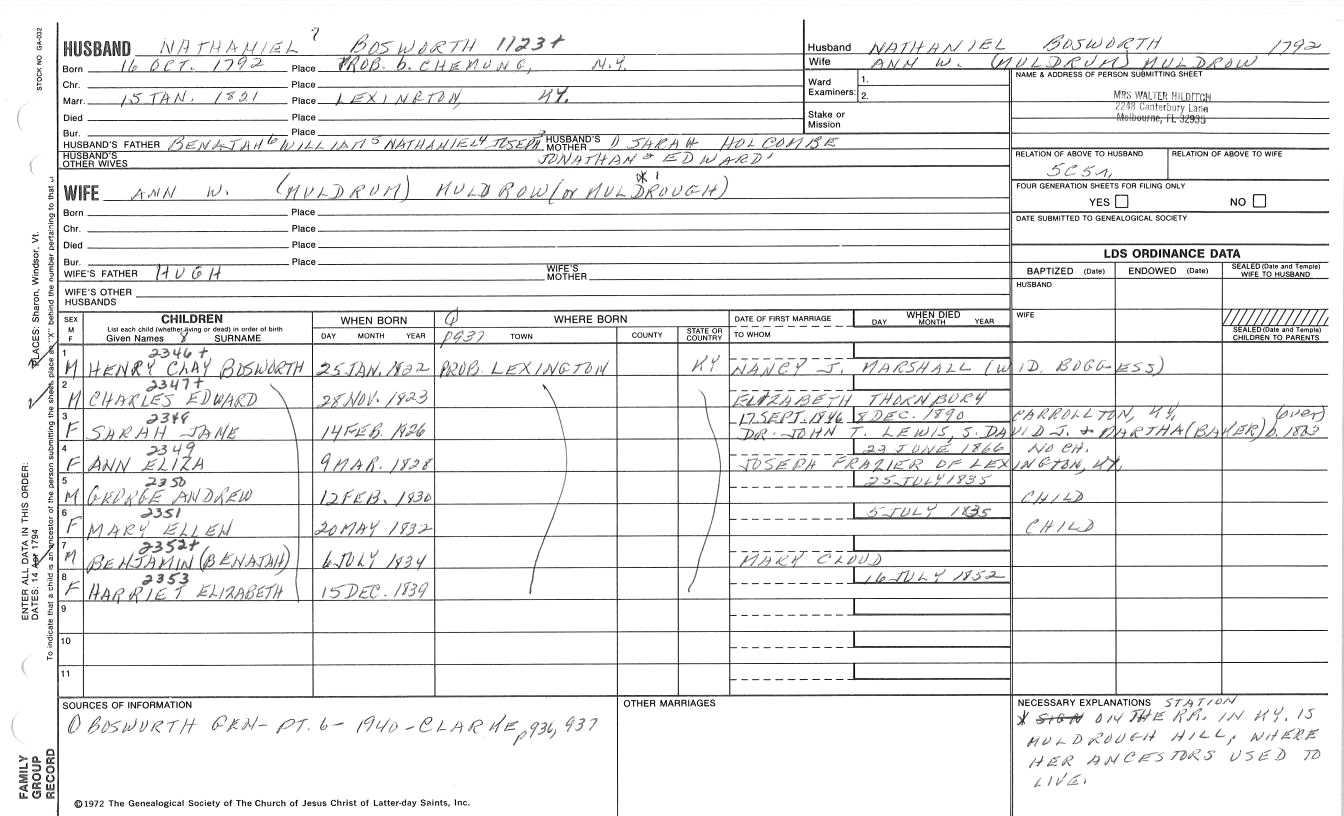 STOCK NO GA-032
HUSBAND NATHANIEL 7 BOSWORTH 1123+
Born 16 OCT. 1792 Place PROB. b. CHEMUNG, N.Y.
Chr. Place
Marr. 15 JAN. 1821 Place LEXINGTON, KY.
Died Place
Bur. Place
HUSBAND'S FATHER BENAJAH6 WILLIAM5 NATHANIEL4 JOSEPH3 HUSBAND'S MOTHER ① SARAH HOLCOMBE
HUSBAND'S OTHER WIVES JONATHAN2 EDWARD1
Husband NATHANIEL BOSWORTH 1792
Wife ANN W. (MULDRUM) MULDROW
Ward 1.
Examiners: 2.
Stake or Mission
NAME & ADDRESS OF PERSON SUBMITTING SHEET
MRS WALTER HILDITCH
2248 Canterbury Lane
Melbourne, FL 32935
RELATION OF ABOVE TO HUSBAND RELATION OF ABOVE TO WIFE
5C5r.
FOUR GENERATION SHEETS FOR FILING ONLY
YES NO
DATE SUBMITTED TO GENEALOGICAL SOCIETY
WIFE ANN W. (MULDRUM) MULDROW (or MULDROUGH) * 1
Born Place
Chr. Place
Died Place
Bur. Place
WIFE'S FATHER HUGH WIFE'S MOTHER
WIFE'S OTHER HUSBANDS
LDS ORDINANCE DATA
BAPTIZED (Date) ENDOWED (Date) SEALED (Date and Temple) WIFE TO HUSBAND
HUSBAND
WIFE
SEALED (Date and Temple) CHILDREN TO PARENTS
SEX M F CHILDREN WHEN BORN ① WHERE BORN DATE OF FIRST MARRIAGE WHEN DIED
List each child (whether living or dead) in order of birth
Given Names 8 SURNAME DAY MONTH YEAR p937 TOWN COUNTY STATE OR COUNTRY TO WHOM DAY MONTH YEAR
1 2346+
M HENRY CLAY BOSWORTH 25 JAN. 1822 PROB. LEXINGTON KY NANCY J. MARSHALL (WID. BOGGESS)
2 2347+
M CHARLES EDWARD 28 NOV. 1823 ELIZABETH THORNBURY
3 2348 17 SEPT. 1846 8 DEC. 1890 CARROLLTON, KY. (over)
F SARAH JANE 14 FEB. 1826 DR. JOHN T. LEWIS, S. DAVID J. & MARTHA (BAKER) b. 1823
4 2349 23 JUNE 1866 NO CH.
F ANN ELIZA 9 MAR. 1828 JOSEPH FRAZIER OF LEXINGTON, KY.
5 2350 25 JULY 1835
M GEORGE ANDREW 12 FEB. 1830 CHILD
6 2351 5 JULY 1835
F MARY ELLEN 20 MAY 1832 CHILD
7 2352+
M BENJAMIN (BENAJAH) 6 JULY 1834 MARY CLOUD
8 2353 16 JULY 1852
F HARRIET ELIZABETH 15 DEC. 1839
9
10
11
SOURCES OF INFORMATION
① BOSWORTH GEN- PT. 6- 1940 - CLARKE, p936, 937
OTHER MARRIAGES
NECESSARY EXPLANATIONS STATION
* SIGN ON THE RR. IN KY. IS
MULDROUGH HILL, WHERE
HER ANCESTORS USED TO
LIVE.
©1972 The Genealogical Society of The Church of Jesus Christ of Latter-day Saints, Inc.
FAMILY
GROUP
RECORD
ENTER ALL DATA IN THIS ORDER:
DATES: 14 Apr 1794
PLACES: Sharon, Windsor, Vt.
To indicate that a child is an ancestor of the person submitting the sheet, place an "X" behind the number pertaining to that